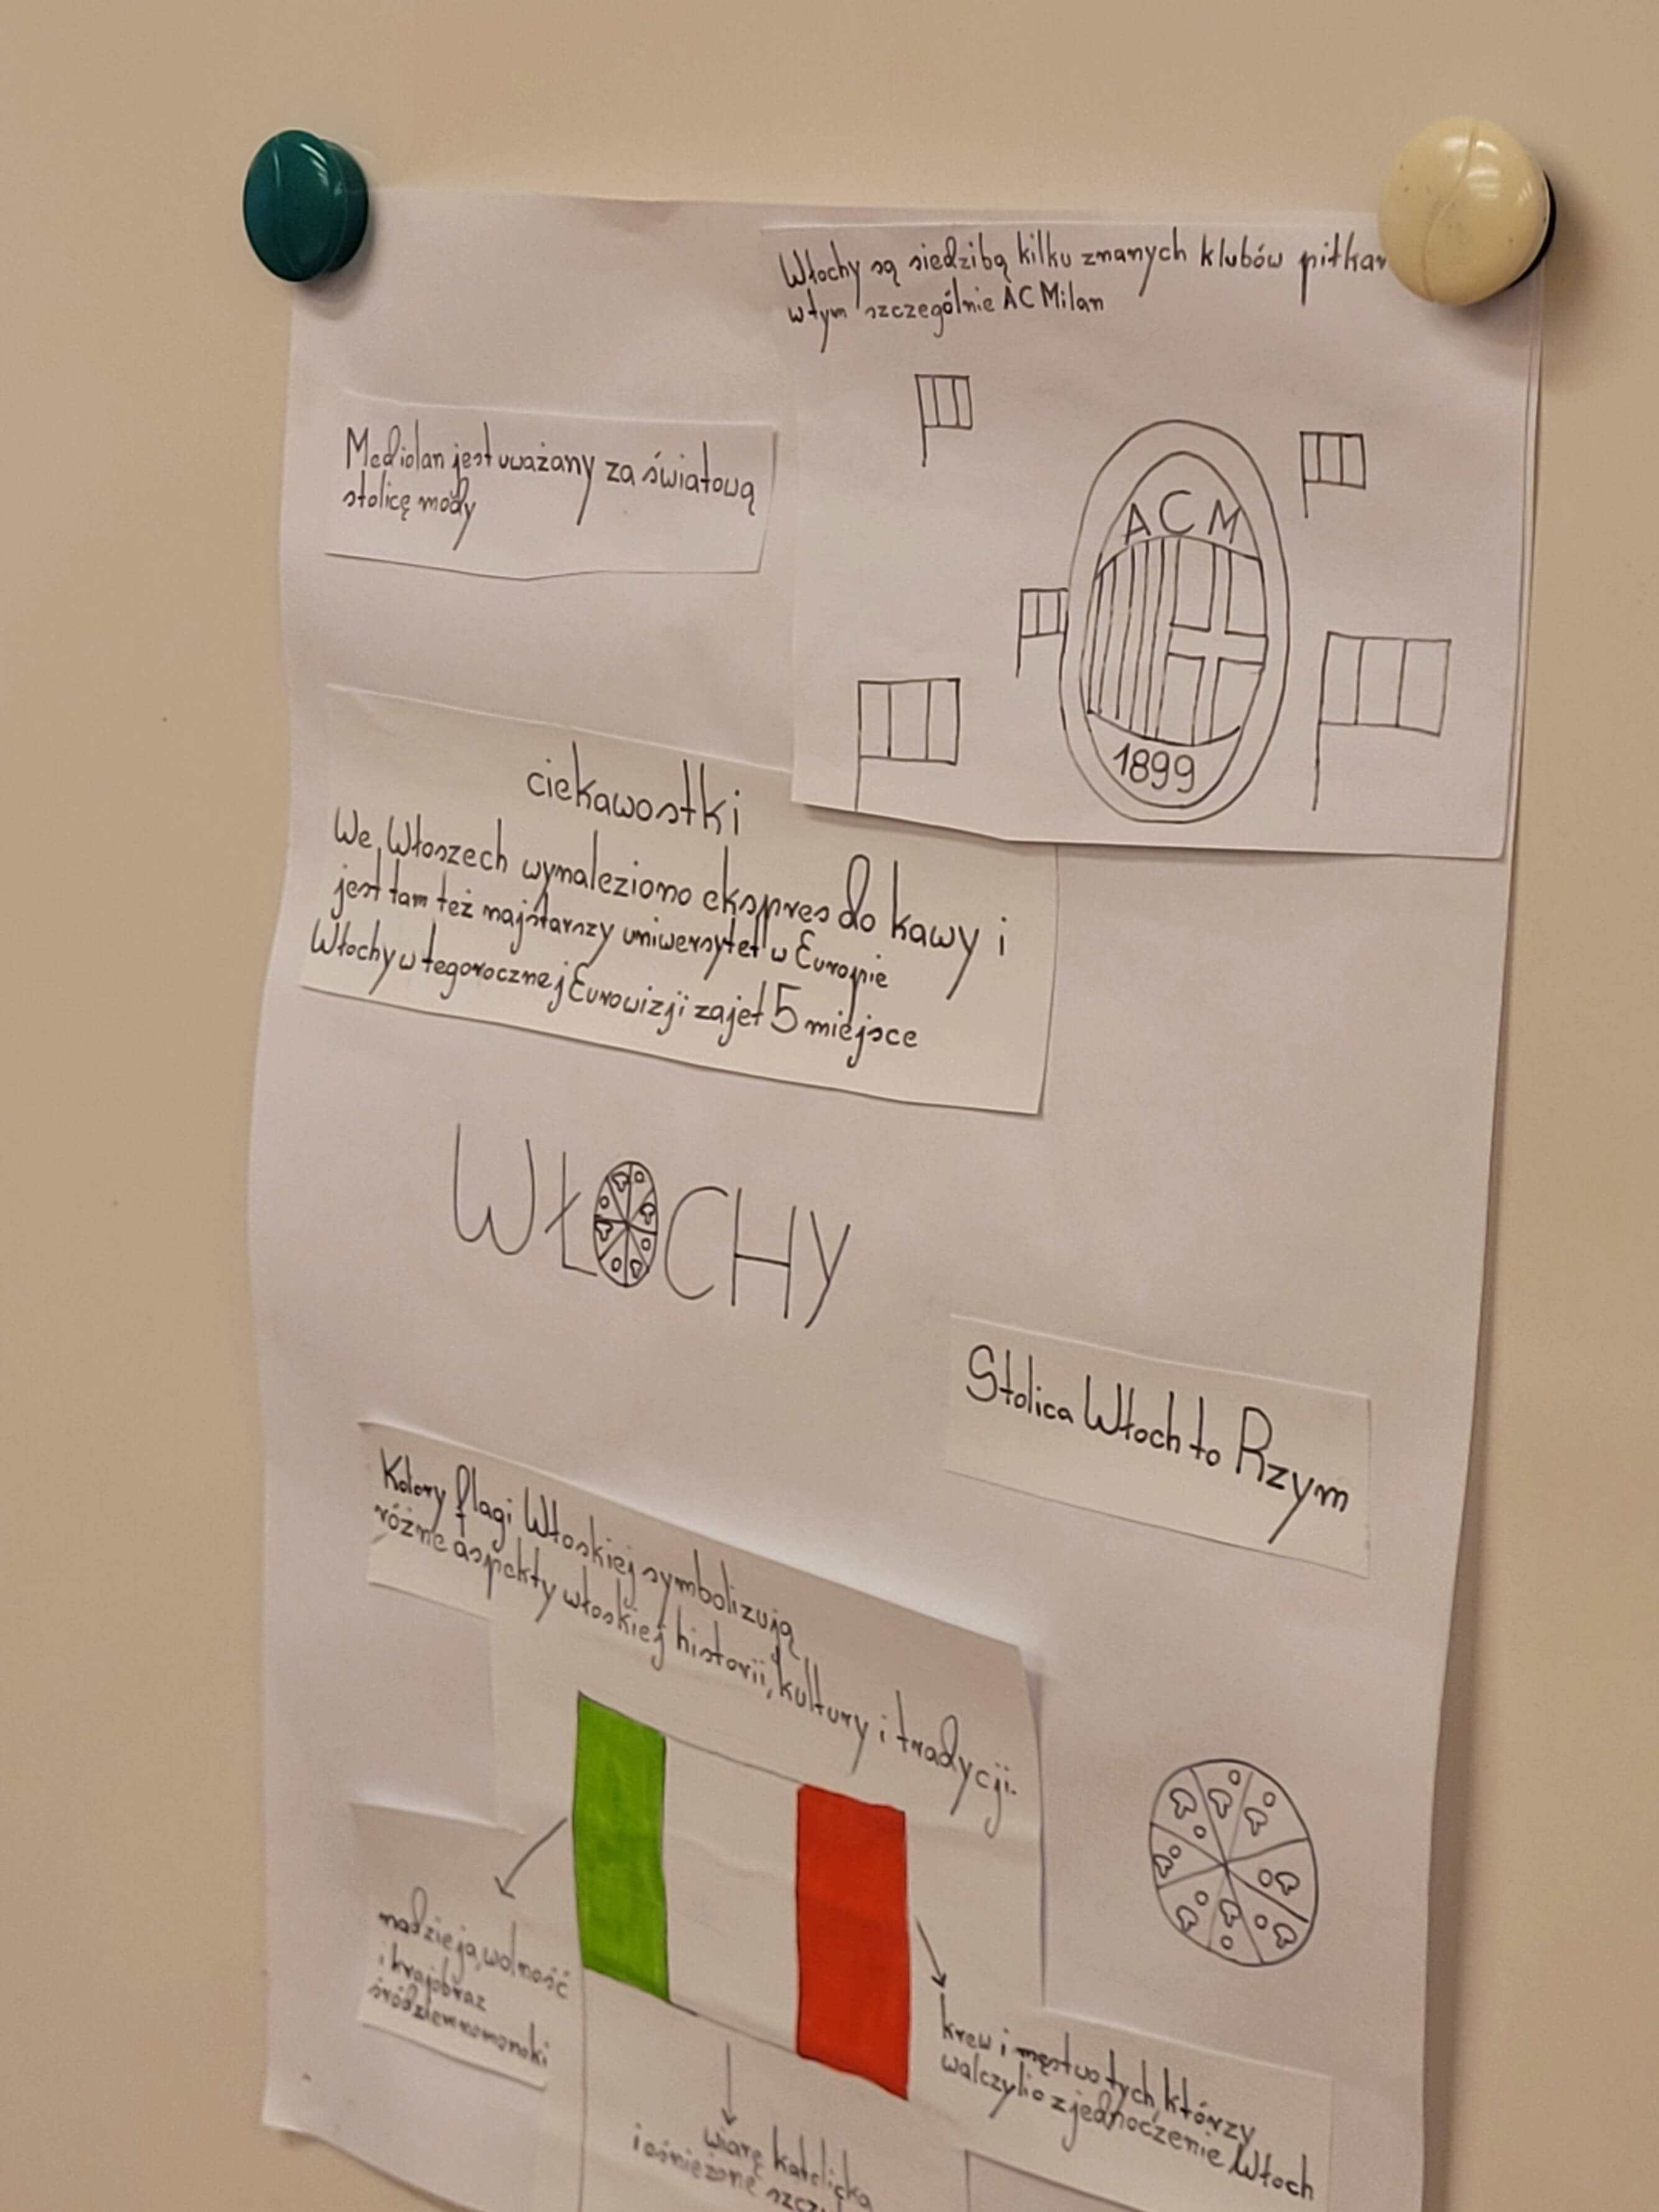 Włochy są siedzibą kilku znanych klubów piłkar
wtym szczególnie AC Milan
Mediolan jest uważany za światową
stolicę mody
ACM
1899
ciekawostki
We Włoszech wynaleziono ekspres do kawy i
jest tam też najstarszy uniwersytet w Europie
Włochy w tegorocznej Eurowizji zajęł 5 miejsce
WŁOCHY
Stolica Włoch to Rzym
Kolory flagi Włoskiej symbolizują
różne aspekty włoskiej historii, kultury i tradycji.
nadzieja, wolność
i krajobraz
śródziemnomorski
krew i męstwo tych, którzy
walczyli o zjednoczenie Włoch
wiarę katolicką
i ośnieżone szczy